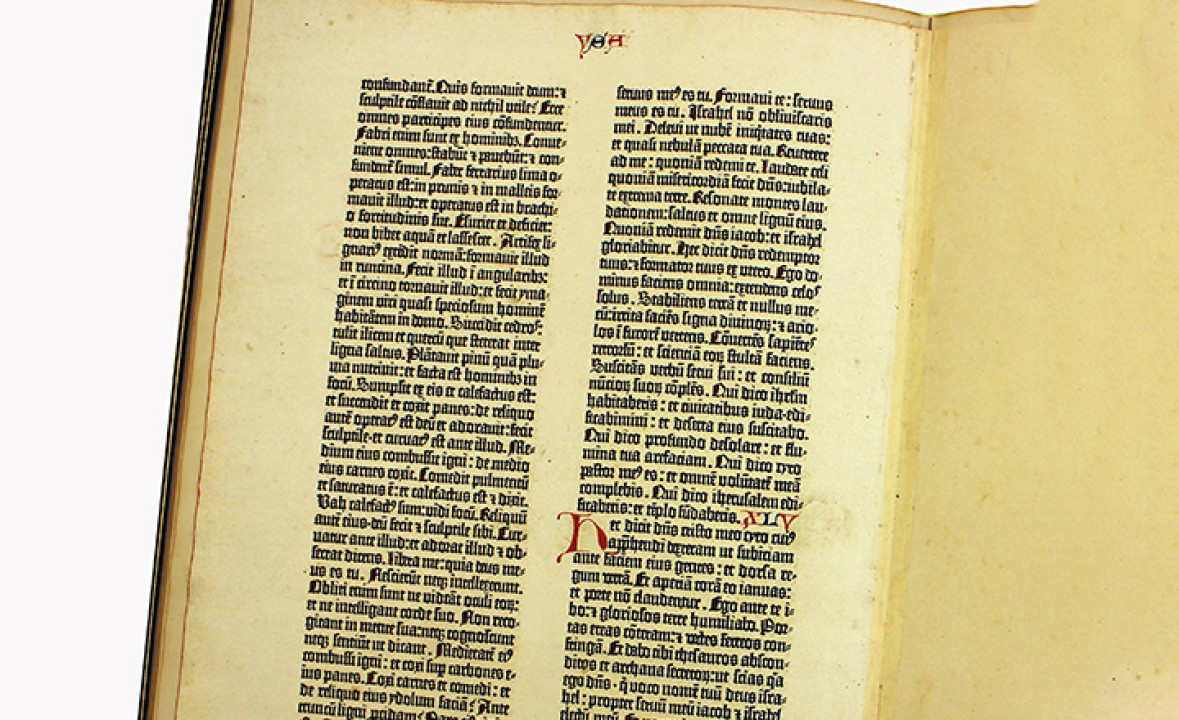 YSA
confundant᷑. Quis formavit deum: ⁊
sculptile cōflavit ad nichil utile? Ecce
omnes participes eius cōfundentur.
Fabri enim sunt ex hominibꝫ. Conve-
nient omnes: stabūt ⁊ pavebūt: ⁊ con-
fundent᷑ simul. Faber ferrarius lima o-
peratus est: in prunis ⁊ in malleis for-
mavit illud: et operatus est in brachi-
o fortitudinis sue. Esuriet et deficiet:
non bibet aquā et lassescet. Artifex li-
gnariꝰ extēdit normā: formavit illud
in runcina. Fecit illud ī angularibꝫ:
et ī circino tornavit illud: et fecit yma-
ginem viri quasi speciosum hominē
habitātem in domo. Succidit cedros:
tulit ilicem et quercū que steterat inter
ligna saltus. Plātavit pinū quā plu-
via nutrivit: et facta est hominibꝫ in
focū. Sumpsit ex eis et calefactus est:
et succendit et coxit panes: de reliquo
autē operatꝰ est deū et adoravit: fecit
sculptile et curvatꝰ est ante illud. Me-
dium eius combussit igni: de medio
eius carnes coxit. Comedit pulmentū
et saturatus ē: et calefactus est ⁊ dixit.
Vah calefactꝰ sum: vidi focū. Reliquū
autē eius deū fecit ⁊ sculptile sibi. Cur-
vatur ante illud: et adorat illud ⁊ ob-
secrat dicens. Libera me: quia deus me-
us es tu. Nescierūt neqꝫ intellexerunt.
Obliti enim sunt ne videāt oculi eoꝝ:
et ne intelligant corde suo. Non reco-
gitant in mente sua: neqꝫ cognoscunt
neqꝫ sentiūt ut dicant. Medietatē eiꝰ
combussi igni: et coxi sup carbones e-
ius panes. Coxi carnes et comedi: et
de reliquo eius ydolum faciā? Ante
truncū ligni
servus meꝰ es tu. Formavi te: servus
meus es tu. Israhel nō obliviscaris
mei. Delevi ut nubē iniq̇tates tuas:
et quasi nebulā peccata tua. Revertere
ad me: quoniā redemi te. Laudate celi
quoniā misericordiā fecit dn̄s: iubila-
te extrema terre. Resonate montes lau-
dationem: saltus et omne lignū eius.
Quoniā redemit dn̄s iacob: et israhel
gloriabitur. Hec dicit dn̄s redemptor
tuus: ⁊ formator tuus ex utero. Ego do-
minus faciens omnia: extendens celos
solus. Stabiliens terrā et nullus me-
cū: irrita faciēs signa divinoꝝ: ⁊ ario-
los ī furorē vertens. Cōvertēs sapiētes
retrorsū: et scienciā eoꝝ stultā faciens.
Suscitās verbū servi sui: et consiliū
nūcioꝝ suoꝝ cōplēs. Qui dico ihrlm
habitaberis: et civitatibus iuda edi-
ficabimini: et deserta eius suscitabo.
Qui dico profundo desolare: et flu-
mina tua arefaciam. Qui dico cyro
pastor meꝰ es: et omnē volūtatē meā
complebis. Qui dico iherusalem edi-
ficaberis: et tēplo fūdaberis. XLV
Hec dicit dn̄s cristo meo cyro cuiꝰ
apphendi dexteram ut subiciam
ante faciem eius gentes: et dorsa re-
gum vertā. Et aperiā corā eo ianuas:
et porte nō claudentur. Ego ante te i-
bo: ⁊ gloriosos terre humiliabo. Por-
tas ereas cōteram: ⁊ vectes ferreos con-
fringā. Et dabo tibi thesauros abscon-
ditos et archana secretoꝝ: ut scias q̄a
ego dn̄s q̇ voco nomē tuū deus isra-
hel: propter servū meū iacob ⁊ israhel